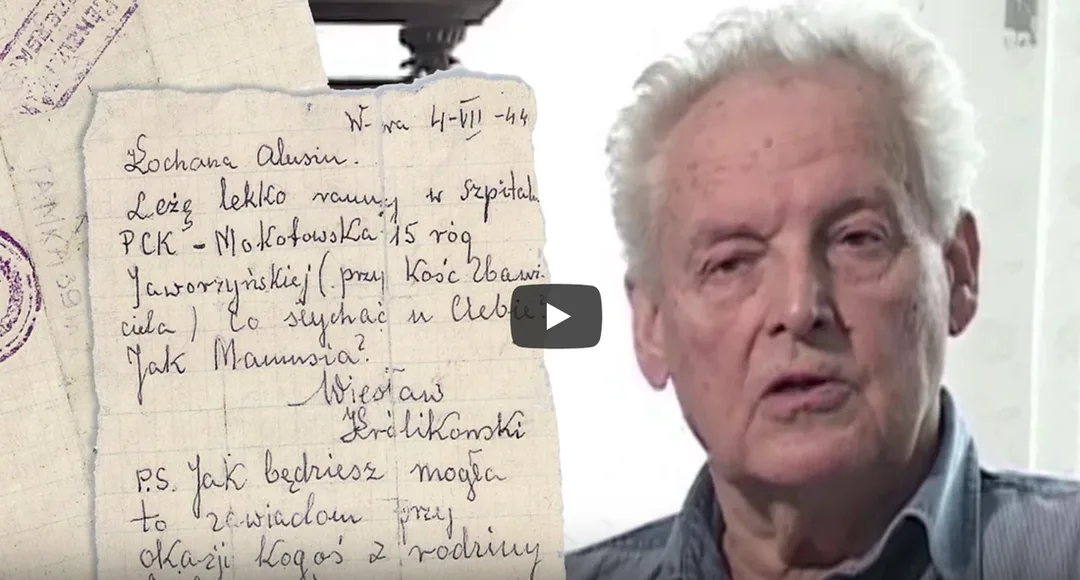 W-wa 4-VII-44
Kochana Alusiu.
Leżę lekko ranny w Szpitalu
PCK - Mokotowska 15 róg
Jaworzyńskiej (przy Kość Zbawi-
ciela) Co słychać u Ciebie?
Jak Mamusia?
Wiesław
Królikowski
P.S. Jak będziesz mogła
to zawiadom przy
okazji kogoś z rodziny